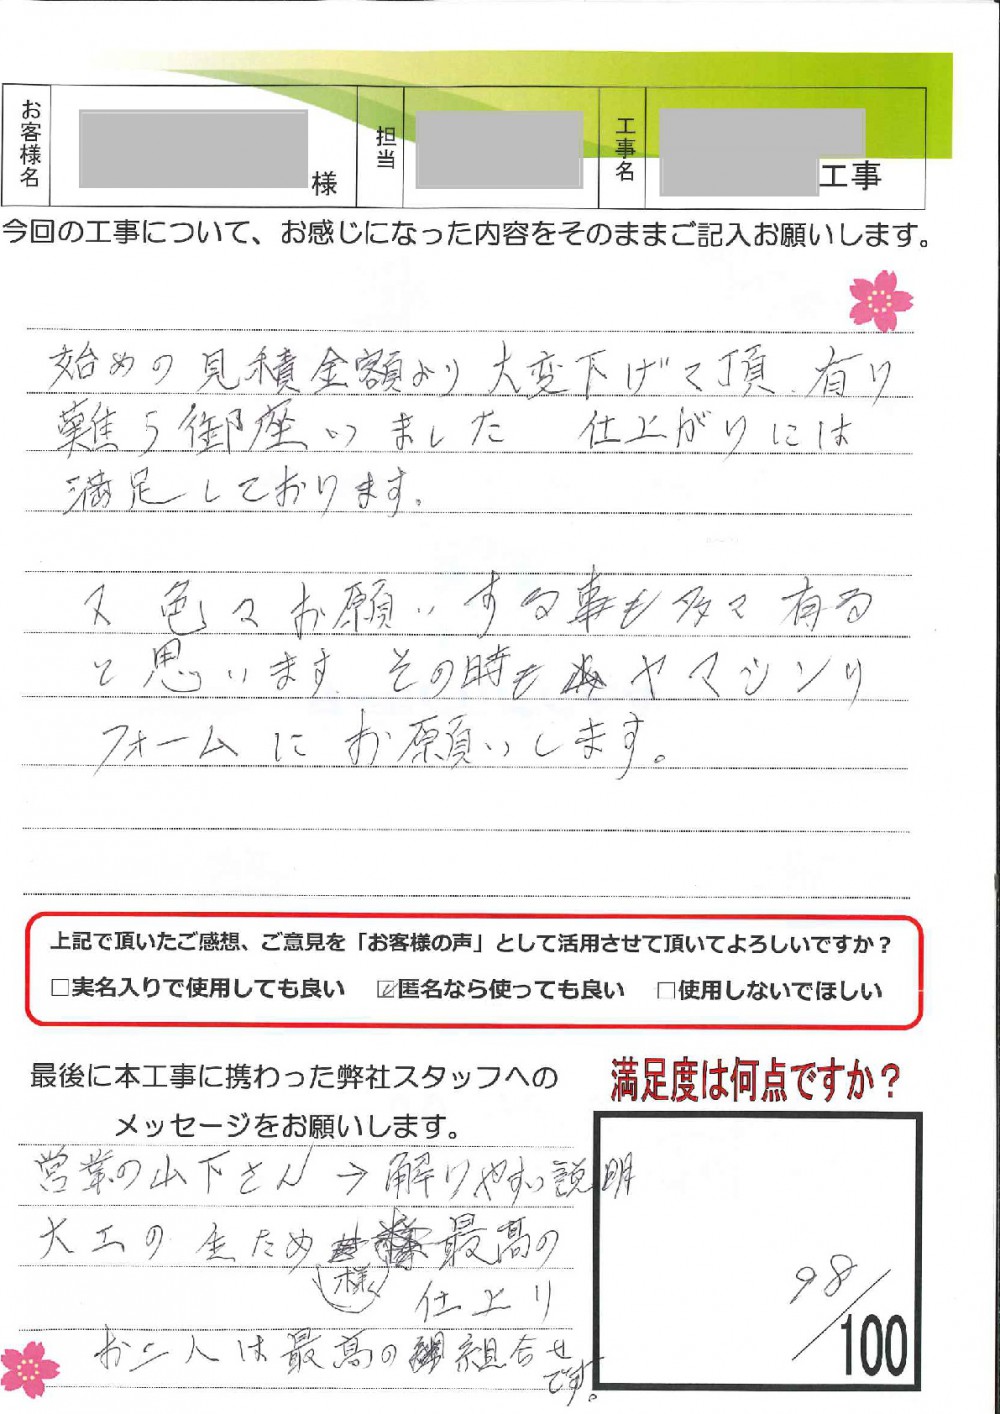 お客様名
様
担当
工事名
工事
今回の工事について、お感じになった内容をそのままご記入お願いします。
始めの見積金額より大変下げて頂、有り
難う御座いました 仕上がりには
満足しております。
又色々お願いする事も多々有る
と思います。その時も ヤマシンリ
フォームにお願いします。
上記で頂いたご感想、ご意見を「お客様の声」として活用させて頂いてよろしいですか？
□実名入りで使用しても良い ☑匿名なら使っても良い □使用しないでほしい
最後に本工事に携わった弊社スタッフへの
メッセージをお願いします。
営業の山下さん → 解りやすい説明
大工の 最高の
様
仕上り
お二人は最高の 組合せ
です。
満足度は何点ですか？
98/100